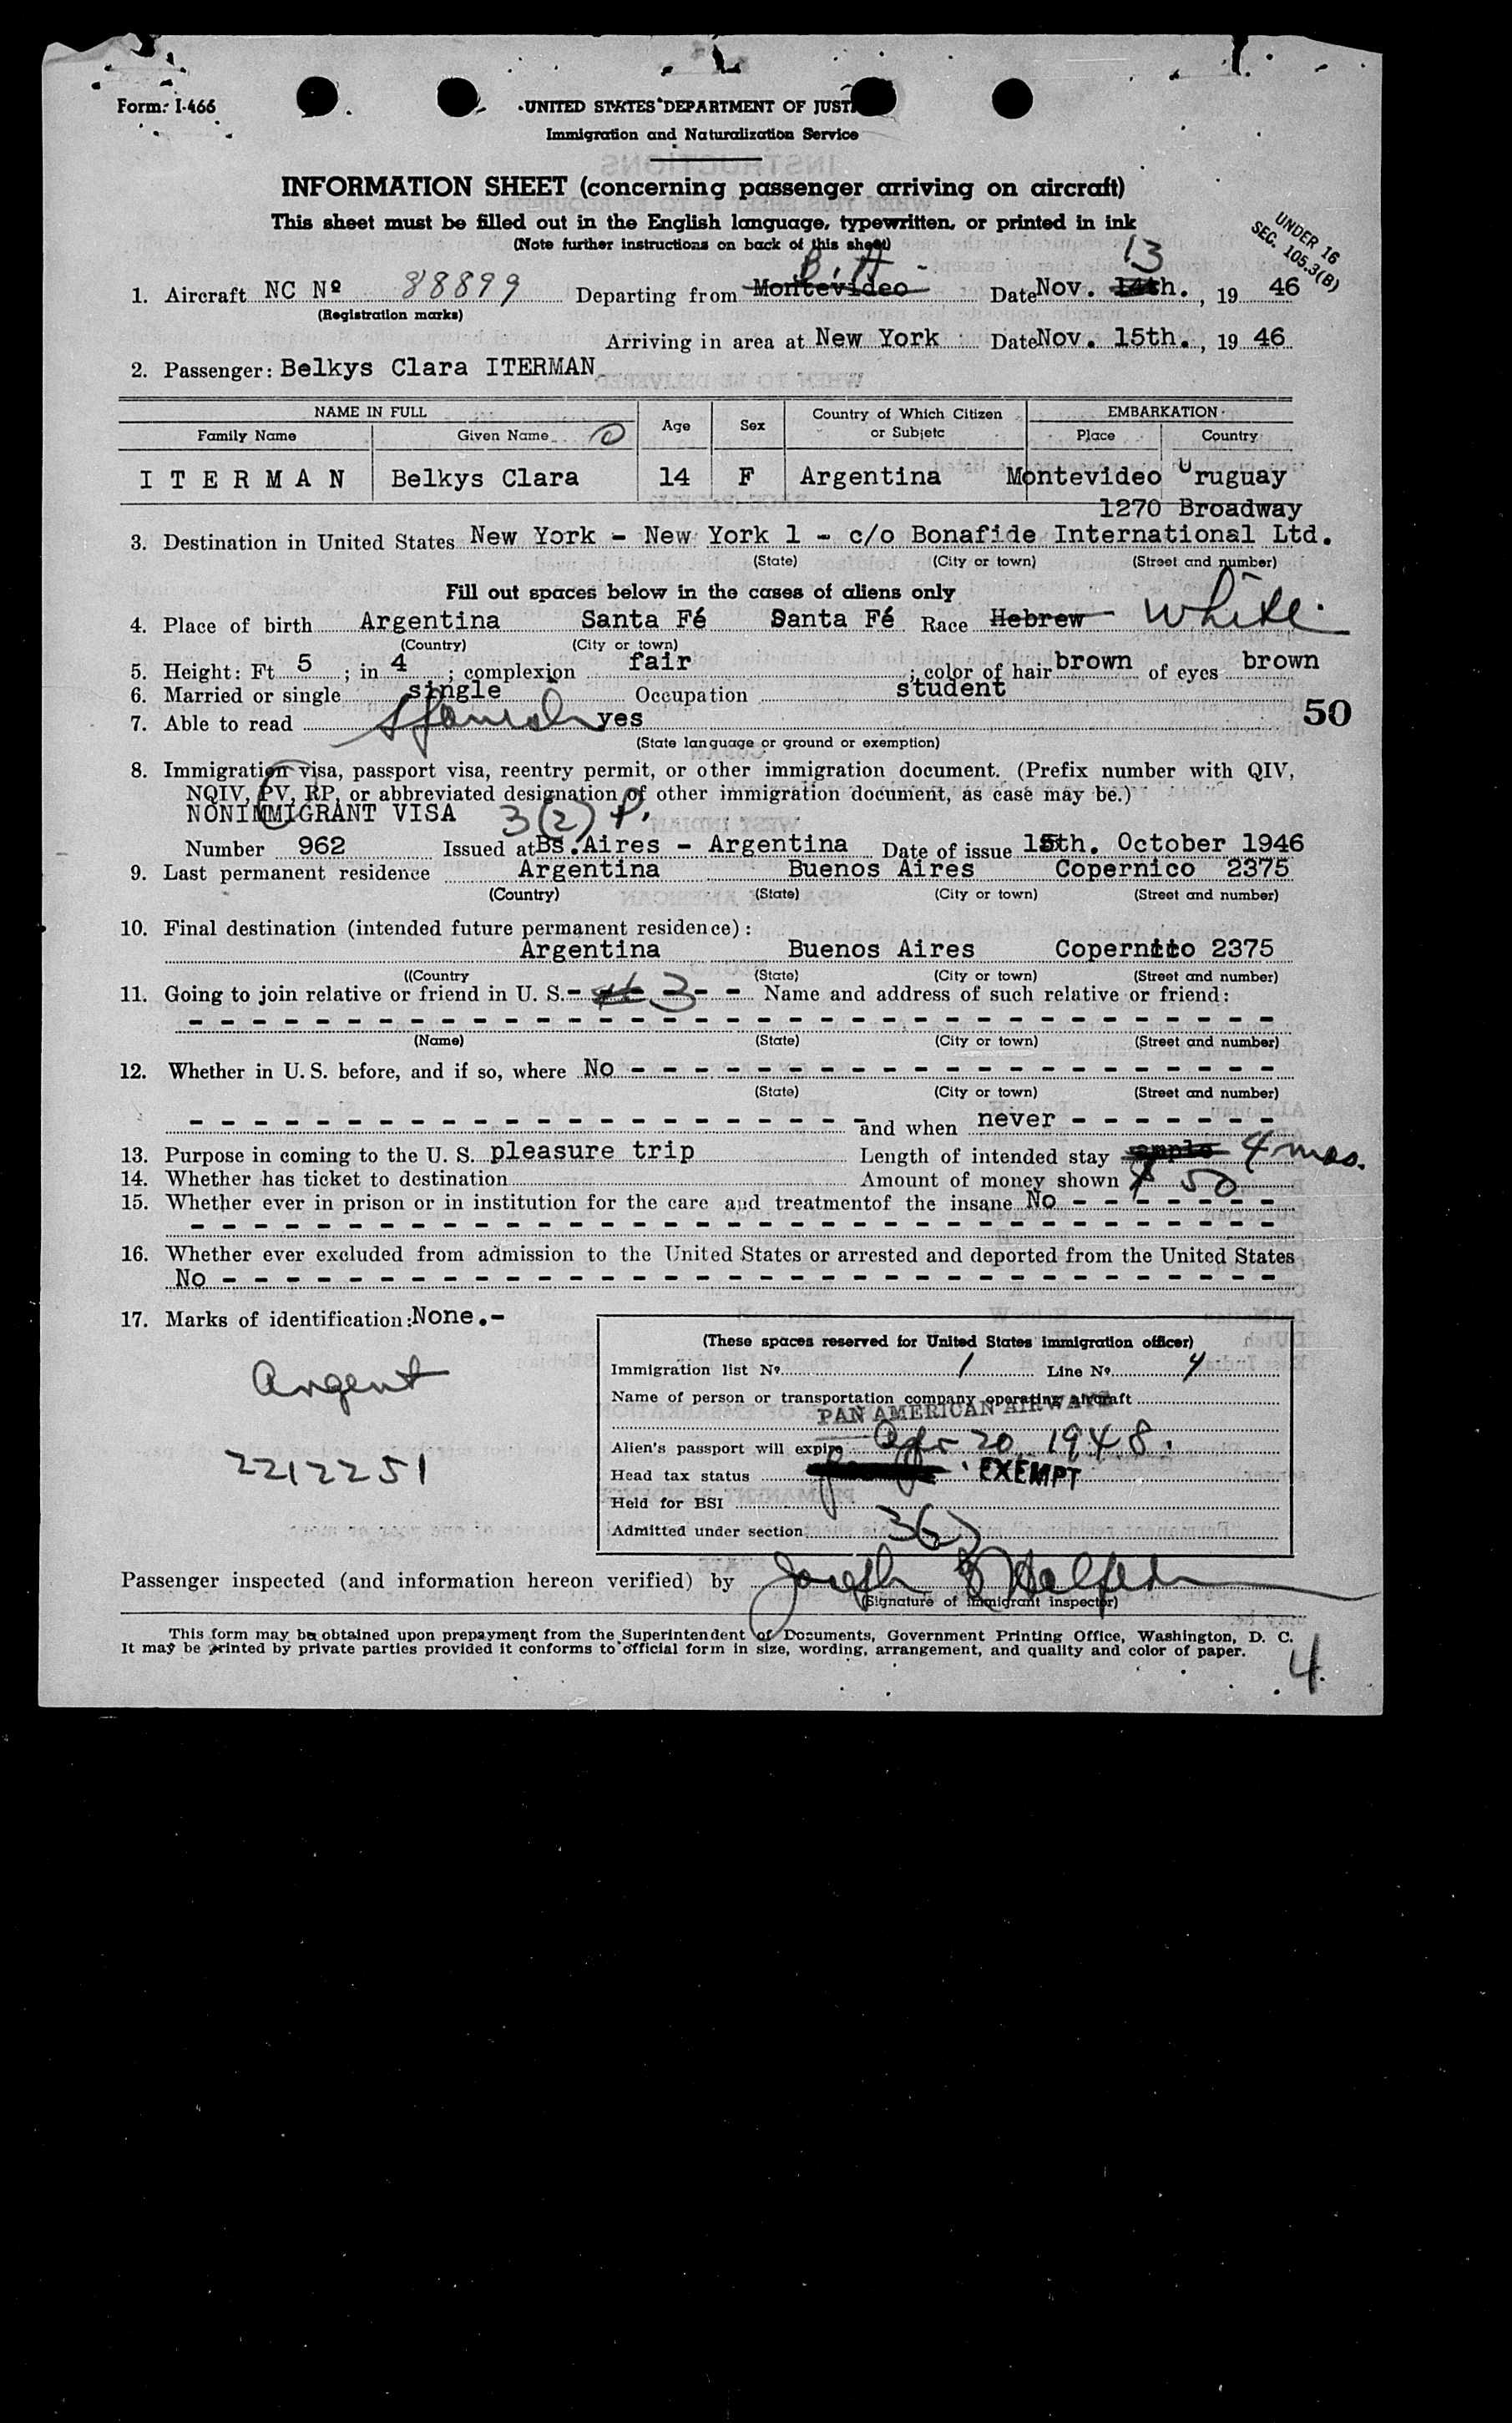 Form: I-466
UNITED STATES DEPARTMENT OF JUST
Immigration and Naturalization Service
INFORMATION SHEET (concerning passenger arriving on aircraft)
This sheet must be filled out in the English language, typewritten, or printed in ink
(Note further instructions on back of this sheet)
UNDER 16
SEC. 105.3(B)
B. A - 13
1. Aircraft NC Nº 88899 Departing from Montevideo Date Nov. 14th., 19 46
(Registration marks)
Arriving in area at New York Date Nov. 15th., 19 46
2. Passenger: Belkys Clara ITERMAN
NAME IN FULL Age Sex Country of Which Citizen or Subjetc EMBARKATION
Family Name Given Name Place Country
I T E R M A N Belkys Clara 14 F Argentina Montevideo Uruguay
1270 Broadway
3. Destination in United States New York - New York 1 - c/o Bonafide International Ltd.
(State) (City or town) (Street and number)
Fill out spaces below in the cases of aliens only
4. Place of birth Argentina Santa Fé Santa Fé Race Hebrew White
(Country) (City or town)
5. Height: Ft 5 ; in 4 ; complexion fair ; color of hair brown of eyes brown
6. Married or single single Occupation student
7. Able to read Spanish yes 50
(State language or ground or exemption)
8. Immigration visa, passport visa, reentry permit, or other immigration document. (Prefix number with QIV,
NQIV, PV, RP, or abbreviated designation of other immigration document, as case may be.)
NONIMMIGRANT VISA 3(2) P.
Number 962 Issued at Bs. Aires - Argentina Date of issue 15th. October 1946
9. Last permanent residence Argentina Buenos Aires Copernico 2375
(Country) (State) (City or town) (Street and number)
10. Final destination (intended future permanent residence):
Argentina Buenos Aires Copernico 2375
((Country (State) (City or town) (Street and number)
11. Going to join relative or friend in U. S. - 3 - - Name and address of such relative or friend:
(Name) (State) (City or town) (Street and number)
12. Whether in U. S. before, and if so, where No - - - - - - - - - - - - - - - - - - - - -
(State) (City or town) (Street and number)
- - - - - - - - - - - - - - - - - - - - - and when never - - - - - - -
13. Purpose in coming to the U. S. pleasure trip Length of intended stay 4 mos.
14. Whether has ticket to destination Amount of money shown $ 50
15. Whether ever in prison or in institution for the care and treatmentof the insane No - - - - - - -
16. Whether ever excluded from admission to the United States or arrested and deported from the United States
No - - - - - - - - - - - - - - - - - - - - - - - - - -
17. Marks of identification: None.-
Argent
2212251
(These spaces reserved for United States immigration officer)
Immigration list Nº 1 Line Nº 4
Name of person or transportation company operating aircraft
PAN AMERICAN AIRWAYS
Alien's passport will expire Apr 20 1948.
Head tax status EXEMPT
Held for BSI
Admitted under section 3(2)
Passenger inspected (and information hereon verified) by Joseph
(Signature of immigrant inspector)
This form may be obtained upon prepayment from the Superintendent of Documents, Government Printing Office, Washington, D. C.
It may be printed by private parties provided it conforms to official form in size, wording, arrangement, and quality and color of paper.
4